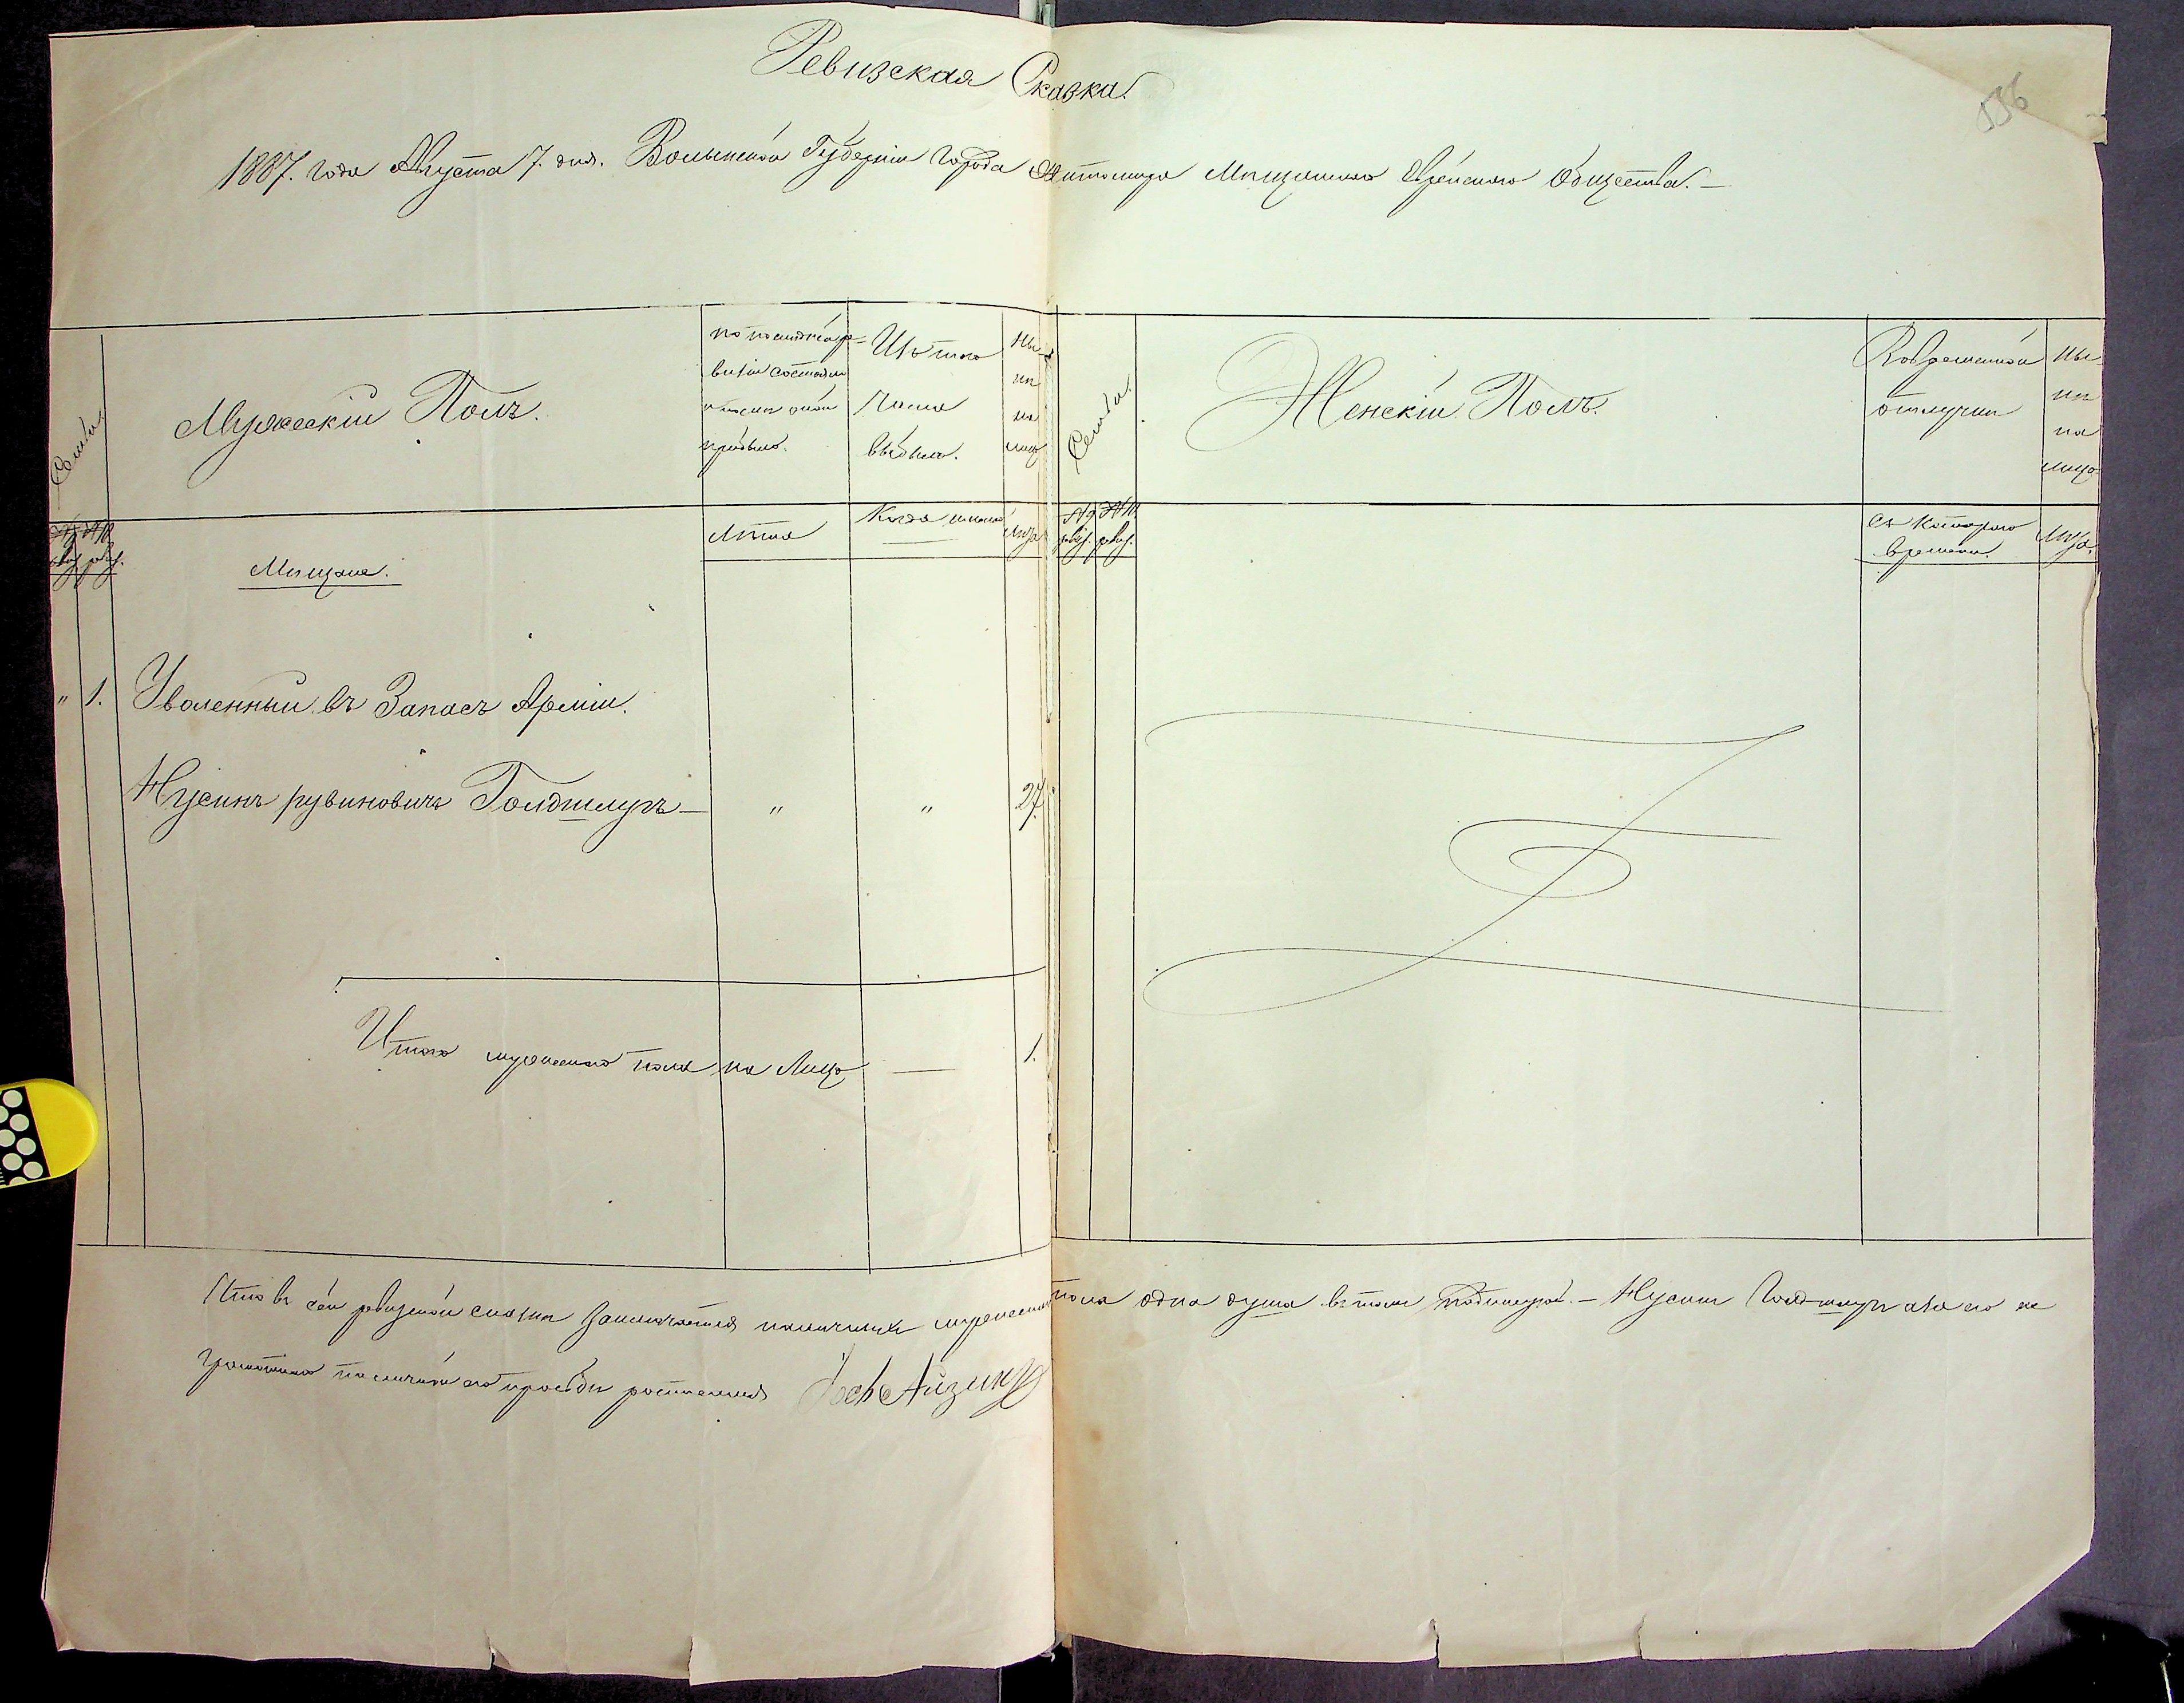 Ревизская Сказка.
536
1887. года Августа 7. дня. Волынской Губерніи города Житомира Мѣщанскаго Еврейскаго Общества. —
Семьи
Мужескій Полъ.
по послѣдней ре-
визіи состояло
и послѣ оной
прибыло.
Изъ того
числа
выбыло.
Ны-
нѣ
на
лицо
Семьи.
Женскій Полъ.
Во временной
отлучкѣ
Ны-
нѣ
на
лицо
№ 9 ревиз. № 10 ревиз.
Мѣщане.
Лѣта
Когда именно
Лѣта
№ 9 ревиз. № 10 ревиз.
Съ котораго
времени.
Лѣта.
" 1. Уволенный въ Запасъ Арміи.
Нусинъ Рувиновичъ Голдшмуръ — " " 27.
Итого мужескаго пола на Лицо — 1.
Что въ сей ревизской сказкѣ заключается наличныхъ мужеска пола одна душа въ томъ подпишусь. — Нусинъ а за его не
грамотнаго по личной его просьбѣ росписался